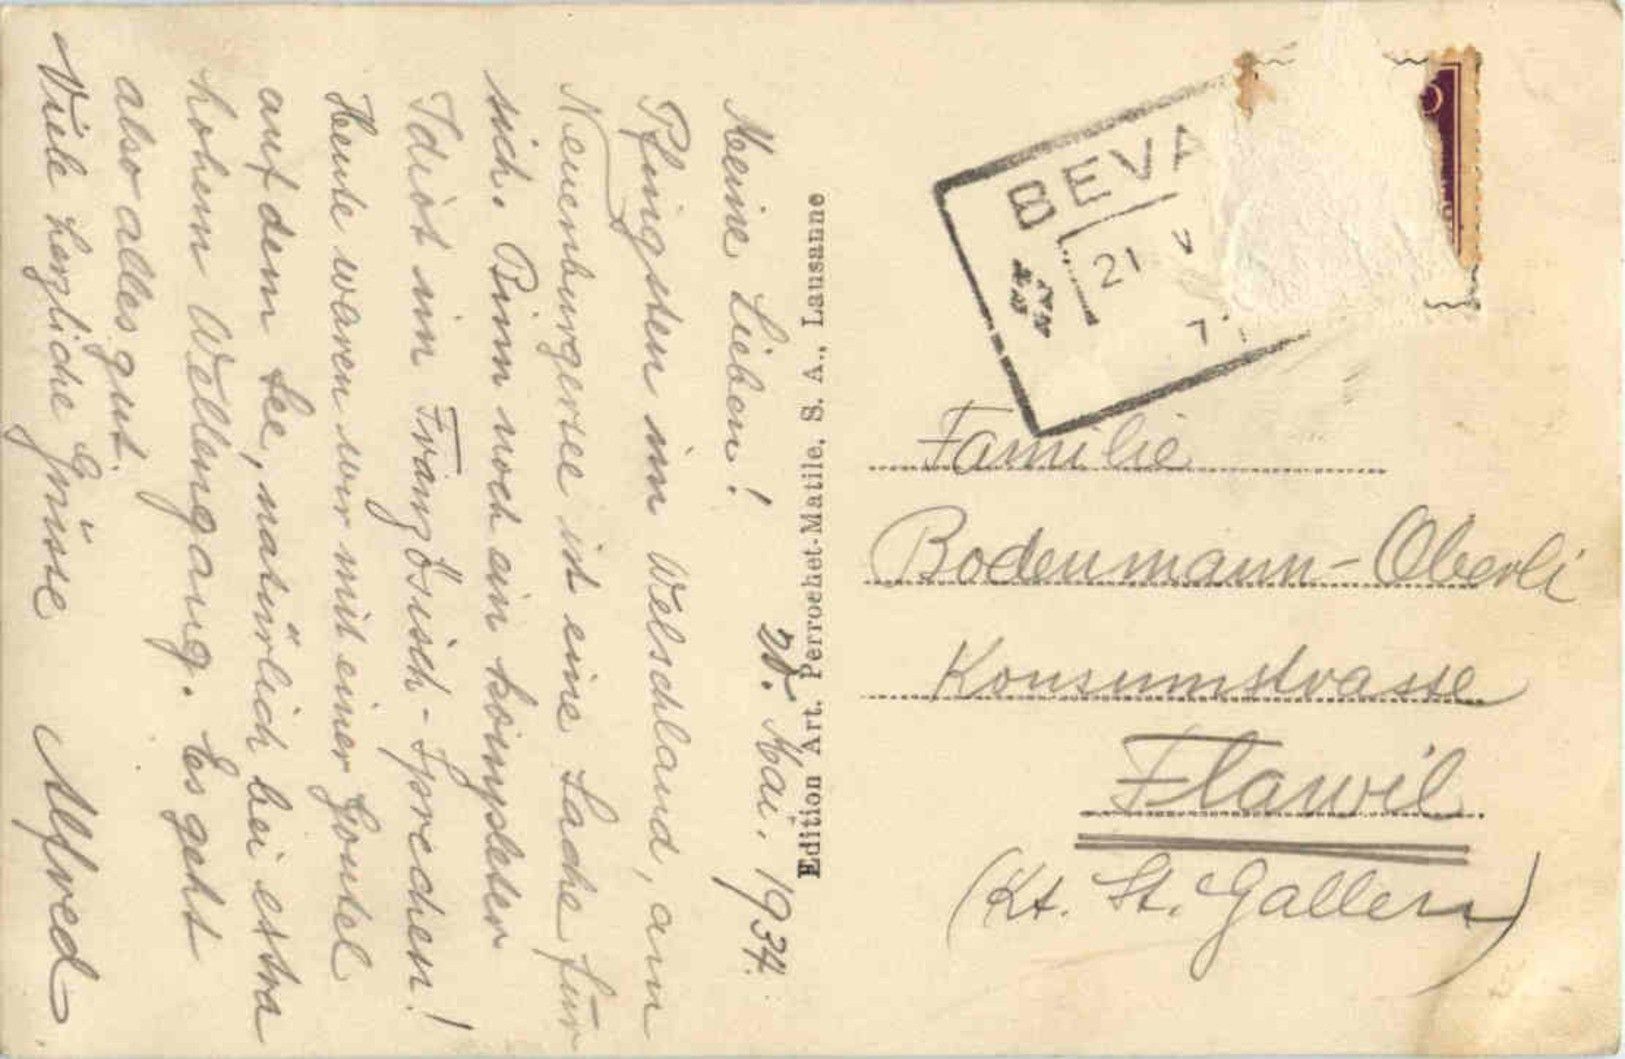 20. Mai. 1934.
Meine Lieben!
Pfingsten im Welschland, am
Neuenburgersee ist eine Sache für
sich. Binn noch ein kompleter
Idiot im Französisch-Sprechen!
Heute waren wir mit einer Gontel
auf dem See, natürlich bei extra
hohem Wellengang. Es geht
also alles gut.
Viele herzliche Grüsse Alfred.
Edition Art. Perrochet-Matile, S. A., Lausanne
BEVA
21 V
7
Familie
Bodenmann-Oberli
Konsumstrasse
Flawil
(Kt. St. Gallen)